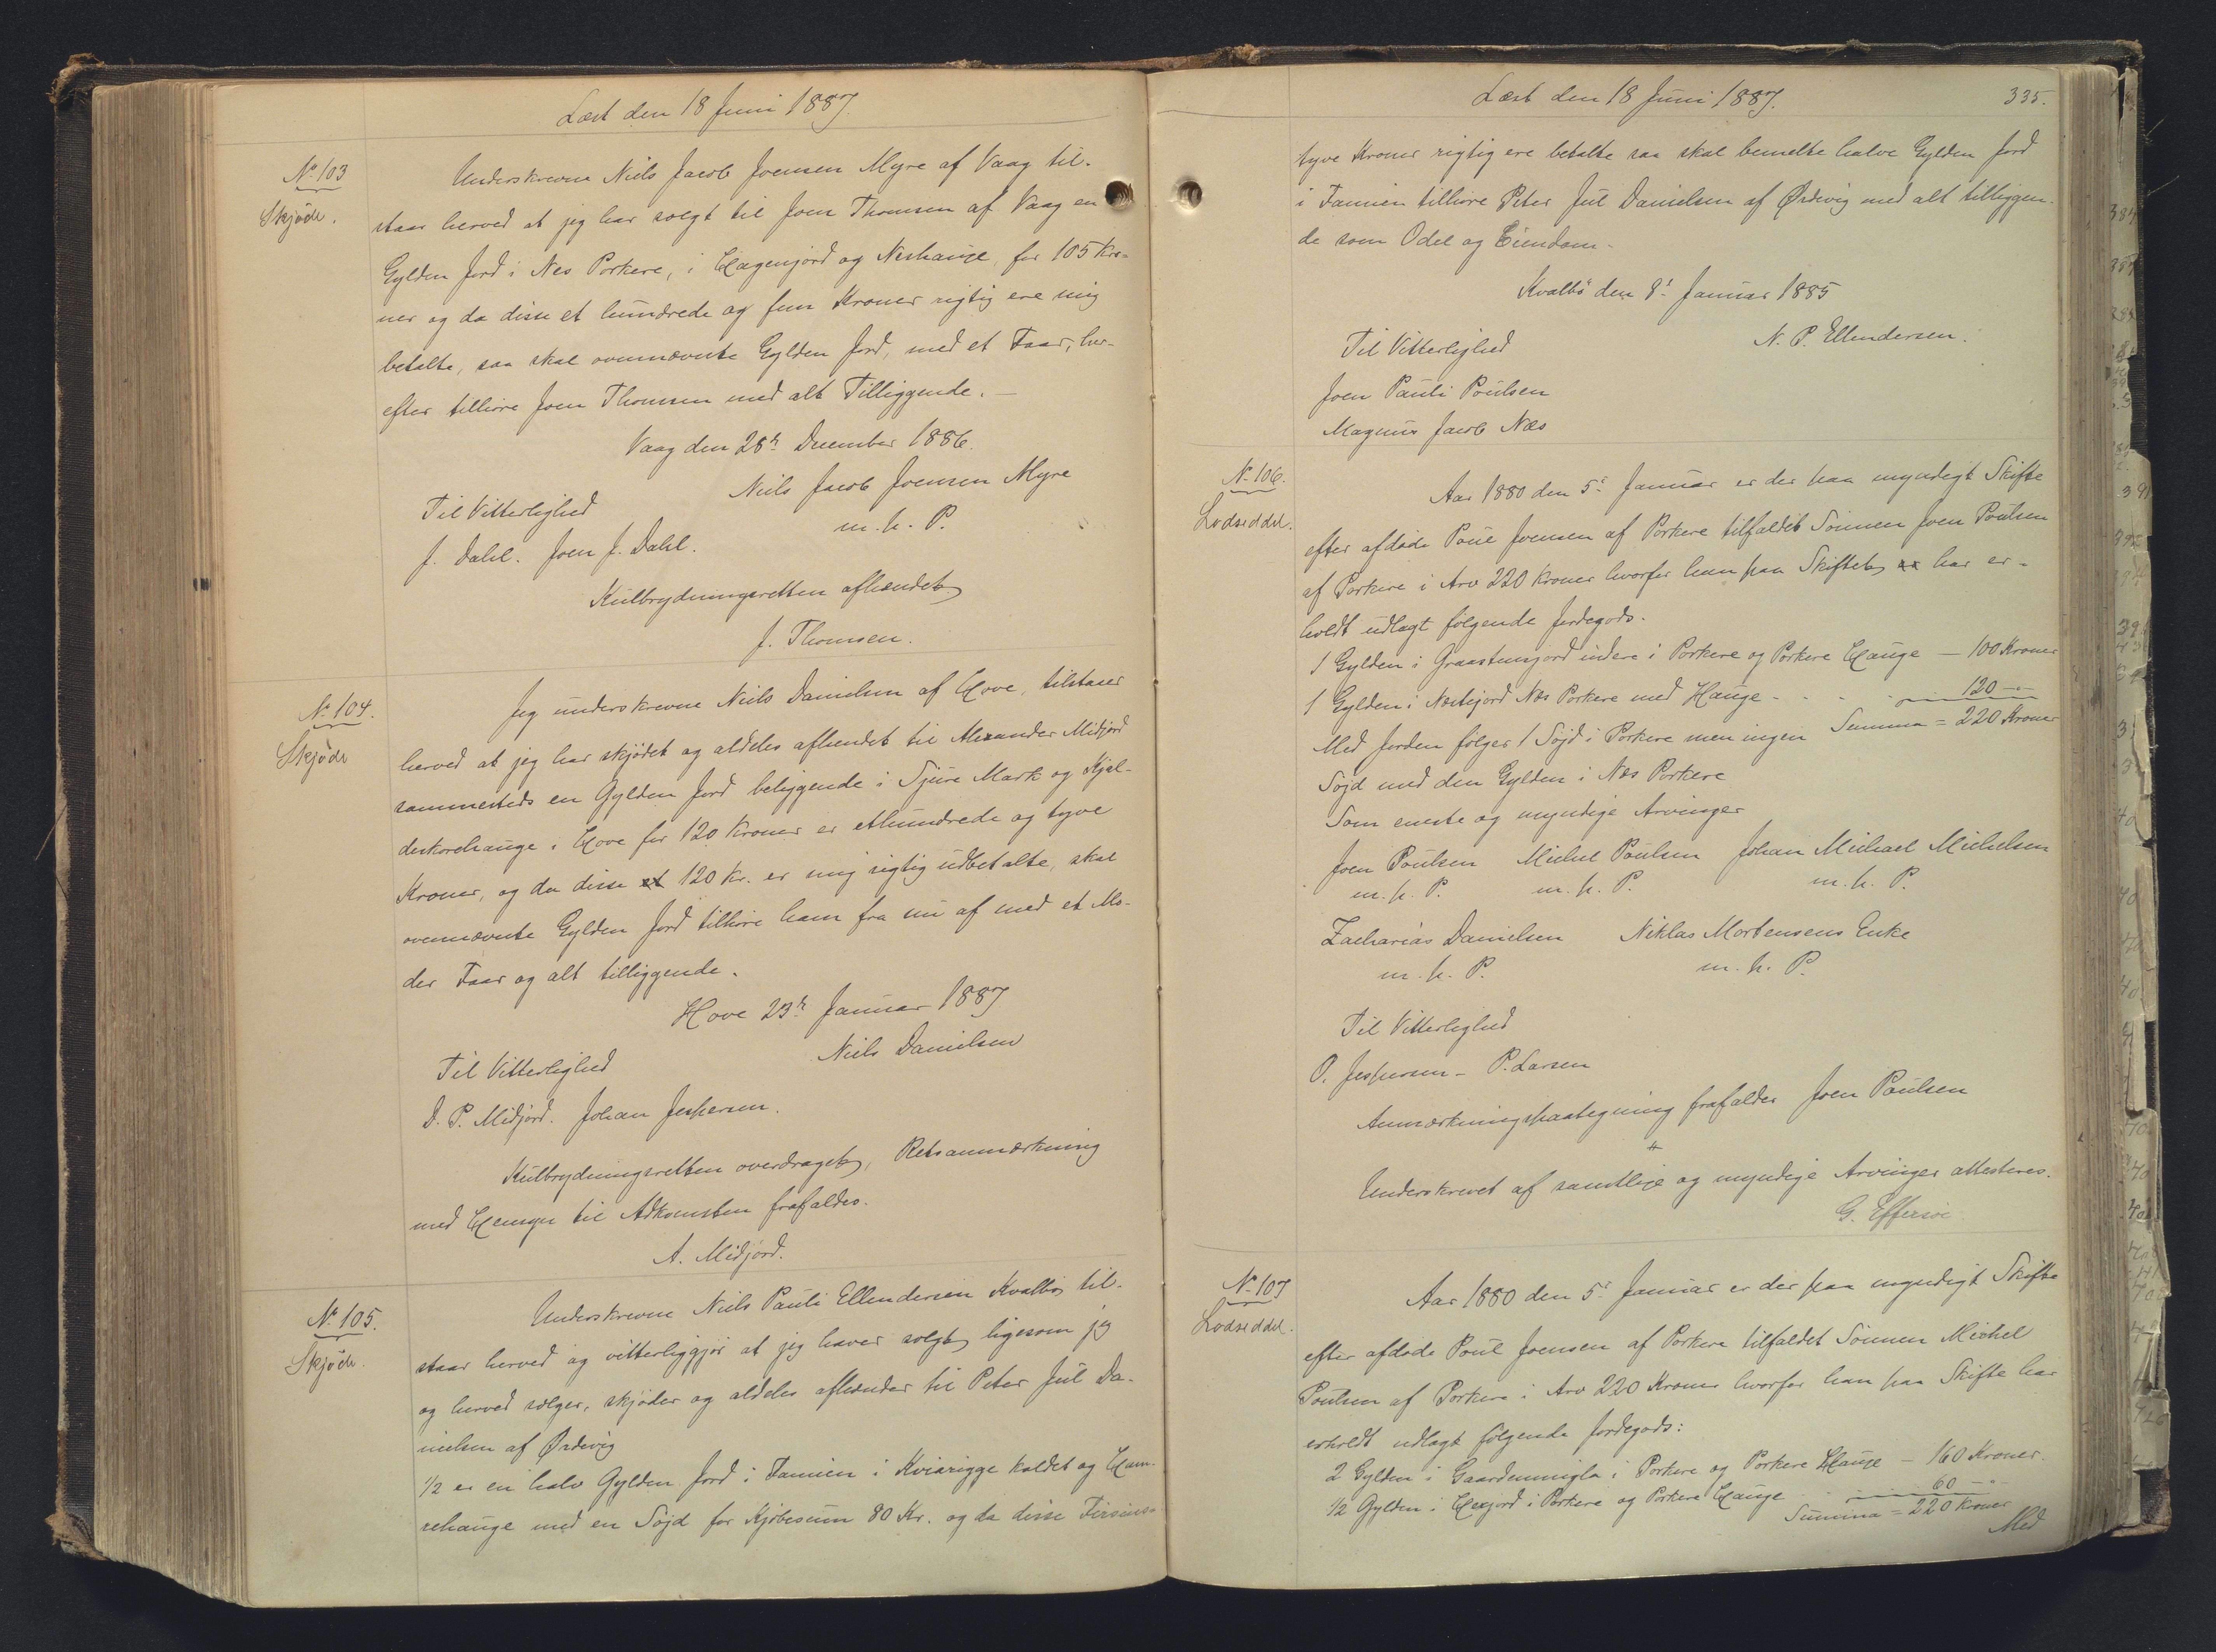 Læst den 18 Juni 1887.
No 103
Skjöde.
Underskrevne Niels Jacob Joensen Myre af Vaag til-
staar herved at jeg har solgt til Joen Thomsen af Vaag en
Gylden Jord i Nes Porkere, i Hagenjord og Neshauge, for 105 Kro-
ner og da disse et hundrede og fem Kroner rigtig ere mig
betalte, saa skal ovennævnte Gylden Jord, med et Faar, her-
efter tilhøre Joen Thomsen med alt Tilliggende. —
Vaag den 28de December 1886.
Niels Jacob Joensen Myre
m. h. P.
Til Vitterlighed
J. Dahl. Joen J. Dahl.
Kulbrydningsretten afhændet
J. Thomsen.
No 104.
Skjöde
Jeg underskrevne Niels Danielsen af Hove, tilstaaer
herved at jeg har skjödet og aldeles afhændet til Alexander Midjord
sammesteds en Gylden Jord beliggende i Sjüre Mark og Kjel-
deskorehauge i Hove for 120 Kroner er ethundrede og tyve
Kroner, og da disse et 120 Kr. er mig rigtig udbetalte, skal
ovennævnte Gylden Jord tilhøre ham fra nu af med et Mo-
der Faar og alt tilliggende.
Hove 23de Januar 1887
Niels Danielsen
Til Vitterlighed
D. P. Midjord. Johan Jespersen.
Kulbrydningsretten overdraget, Retsanmærkning
med Hensyn til Adkomsten frafaldes.
A. Midjord.
No 105.
Skjöde.
Underskrevne Niels Pauli Ellendersen Kvalbø, til-
staar herved og vitterliggjør at jeg haver solgt, ligesom jeg
og herved sælger, skjøder og aldeles afhænder til Peter Jul Da-
nielsen af Ørdevig
1/2 er en halv Gylden Jord i Famien i Kviarigge kaldet og Ham-
rehauge med en Söjd for Kjøbesum 80 Kr. og da disse Firsinds-
Læst den 18 Juni 1887.
335.
tyve Kroner rigtig ere betalte saa skal bemelte halve Gylden Jord
i Famien tilhøre Peter Jul Danielsen af Ørdevig med alt tilliggen-
de som Odel og Eiendom.
Kvalbö den 8de Januar 1885
N. P. Ellendersen.
Til Vitterlighed
Joen Pauli Poulsen
Magnus Jacob Næs
No 106.
Lodseddel.
Aar 1880 den 5te Januar er der paa myndigt Skifte
efter afdøde Poul Joensen af Porkere tilfaldet Sönnen Joen Poulsen
af Porkere i Arv 220 Kroner hvorfor han paa Skiftet har er-
holdt udlagt følgende Jordegods.
1 Gylden i Graastensjord indere i Porkere og Porkere Hauge — 100 Kroner
1 Gylden i Nestejord Nes Porkere med Hauge - - - 120 - -
Med Jorden følger 1 Söjd i Porkere men ingen Summa = 220 Kroner
Söjd med den Gylden i Nes Porkere
Som eneste og myndige Arvinger
Joen Poulsen Michel Poulsen Johan Michael Michelsen
m. h. P. m. h. P. m. h. P.
Zacharias Danielsen Niklas Mortensens Enke
m. h. P. m. h. P.
Til Vitterlighed
O. Jespersen - P. Larsen
Anmærkningspaategning frafaldes Joen Paulsen
+
Underskrevet af samtlige og myndige Arvinger attesteres.
G. Effersöe
No 107
Lodseddel.
Aar 1880 den 5te Januar er der paa myndigt Skifte
efter afdøde Poul Joensen af Porkere tilfaldet Sönnen Michel
Poulsen af Porkere i Arv 220 Kroner hvorfor han paa Skifte har
erholdt udlagt følgende Jordegods:
2 Gylden i Gaardemmigla i Porkere og Porkere Hauge — 160 Kroner.
1/2 Gylden i Hexjord i Porkere og Porkere Hauge 60 - "
Summa = 220 Kroner
Med